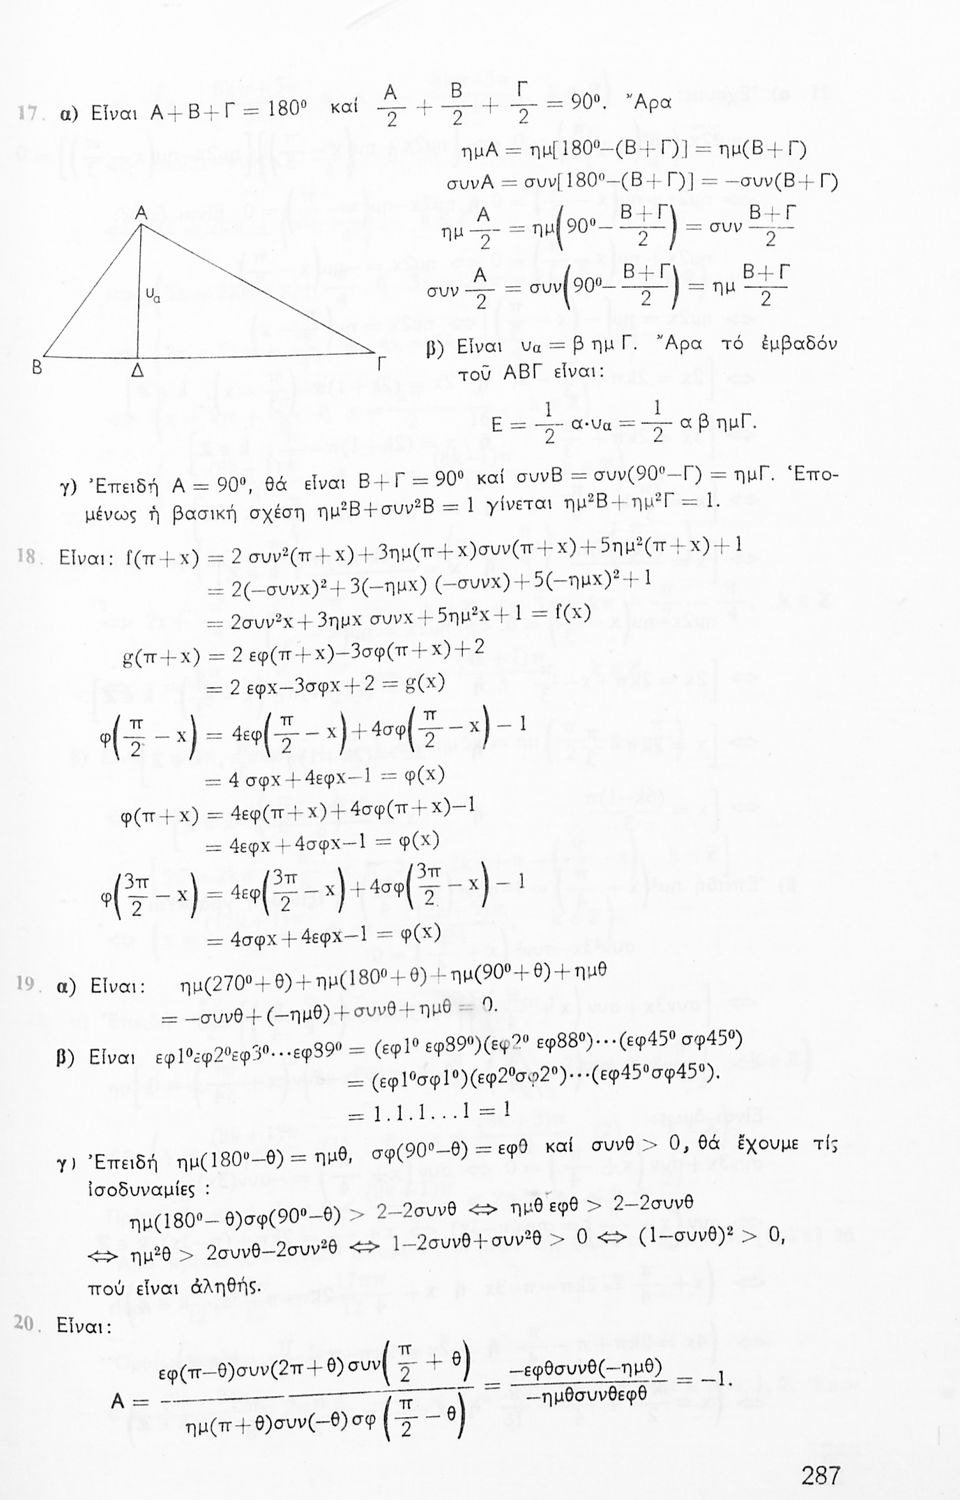 17. α) Εἶναι Α+Β+Γ = 180⁰ καί Α/2 + Β/2 + Γ/2 = 90⁰. Ἄρα
ημΑ = ημ[180⁰–(Β+Γ)] = ημ(Β+Γ)
συνΑ = συν[180⁰–(Β+Γ)] = –συν(Β+Γ)
ημ Α/2 = ημ(90⁰– (Β+Γ)/2) = συν (Β+Γ)/2
συν Α/2 = συν(90⁰– (Β+Γ)/2) = ημ (Β+Γ)/2
Α
υα
Β
Δ
Γ
β) Εἶναι υα = β ημ Γ. Ἄρα τό ἐμβαδόν
τοῦ ΑΒΓ εἶναι:
Ε = 1/2 α·υα = 1/2 α β ημΓ.
γ) Ἐπειδή Α = 90⁰, θά εἶναι Β+Γ = 90⁰ καί συνΒ = συν(90⁰–Γ) = ημΓ. Ἑπο-
μένως ἡ βασική σχέση ημ²Β+συν²Β = 1 γίνεται ημ²Β+ημ²Γ = 1.
18. Εἶναι: f(π+x) = 2 συν²(π+x)+3ημ(π+x)συν(π+x)+5ημ²(π+x)+1
= 2(–συνx)²+3(–ημx) (–συνx)+5(–ημx)²+1
= 2συν²x+3ημx συνx+5ημ²x+1 = f(x)
g(π+x) = 2 εφ(π+x)–3σφ(π+x)+2
= 2 εφx–3σφx+2 = g(x)
φ(π/2 – x) = 4εφ(π/2 – x)+4σφ(π/2 – x) – 1
= 4 σφx+4εφx–1 = φ(x)
φ(π+x) = 4εφ(π+x)+4σφ(π+x)–1
= 4εφx+4σφx–1 = φ(x)
φ(3π/2 – x) = 4εφ(3π/2 – x)+4σφ(3π/2 – x) – 1
= 4σφx+4εφx–1 = φ(x)
19. α) Εἶναι: ημ(270⁰+θ)+ημ(180⁰+θ)+ημ(90⁰+θ)+ημθ
= –συνθ+(–ημθ)+συνθ+ημθ = 0.
β) Εἶναι εφ1⁰εφ2⁰εφ3⁰···εφ89⁰ = (εφ1⁰ εφ89⁰)(εφ2⁰ εφ88⁰)···(εφ45⁰ σφ45⁰)
= (εφ1⁰σφ1⁰)(εφ2⁰σφ2⁰)···(εφ45⁰σφ45⁰).
= 1.1.1...1 = 1
γ) Ἐπειδή ημ(180⁰–θ) = ημθ, σφ(90⁰–θ) = εφθ καί συνθ > 0, θά ἔχουμε τίς
ἰσοδυναμίες :
ημ(180⁰– θ)σφ(90⁰–θ) > 2–2συνθ ⇔ ημθ εφθ > 2–2συνθ
⇔ ημ²θ > 2συνθ–2συν²θ ⇔ 1–2συνθ+συν²θ > 0 ⇔ (1–συνθ)² > 0,
πού εἶναι ἀληθής.
20. Εἶναι:
Α = εφ(π–θ)συν(2π+θ)συν(π/2 + θ) / ημ(π+θ)συν(–θ)σφ(π/2 – θ) = –εφθσυνθ(–ημθ) / –ημθσυνθεφθ = –1.
287